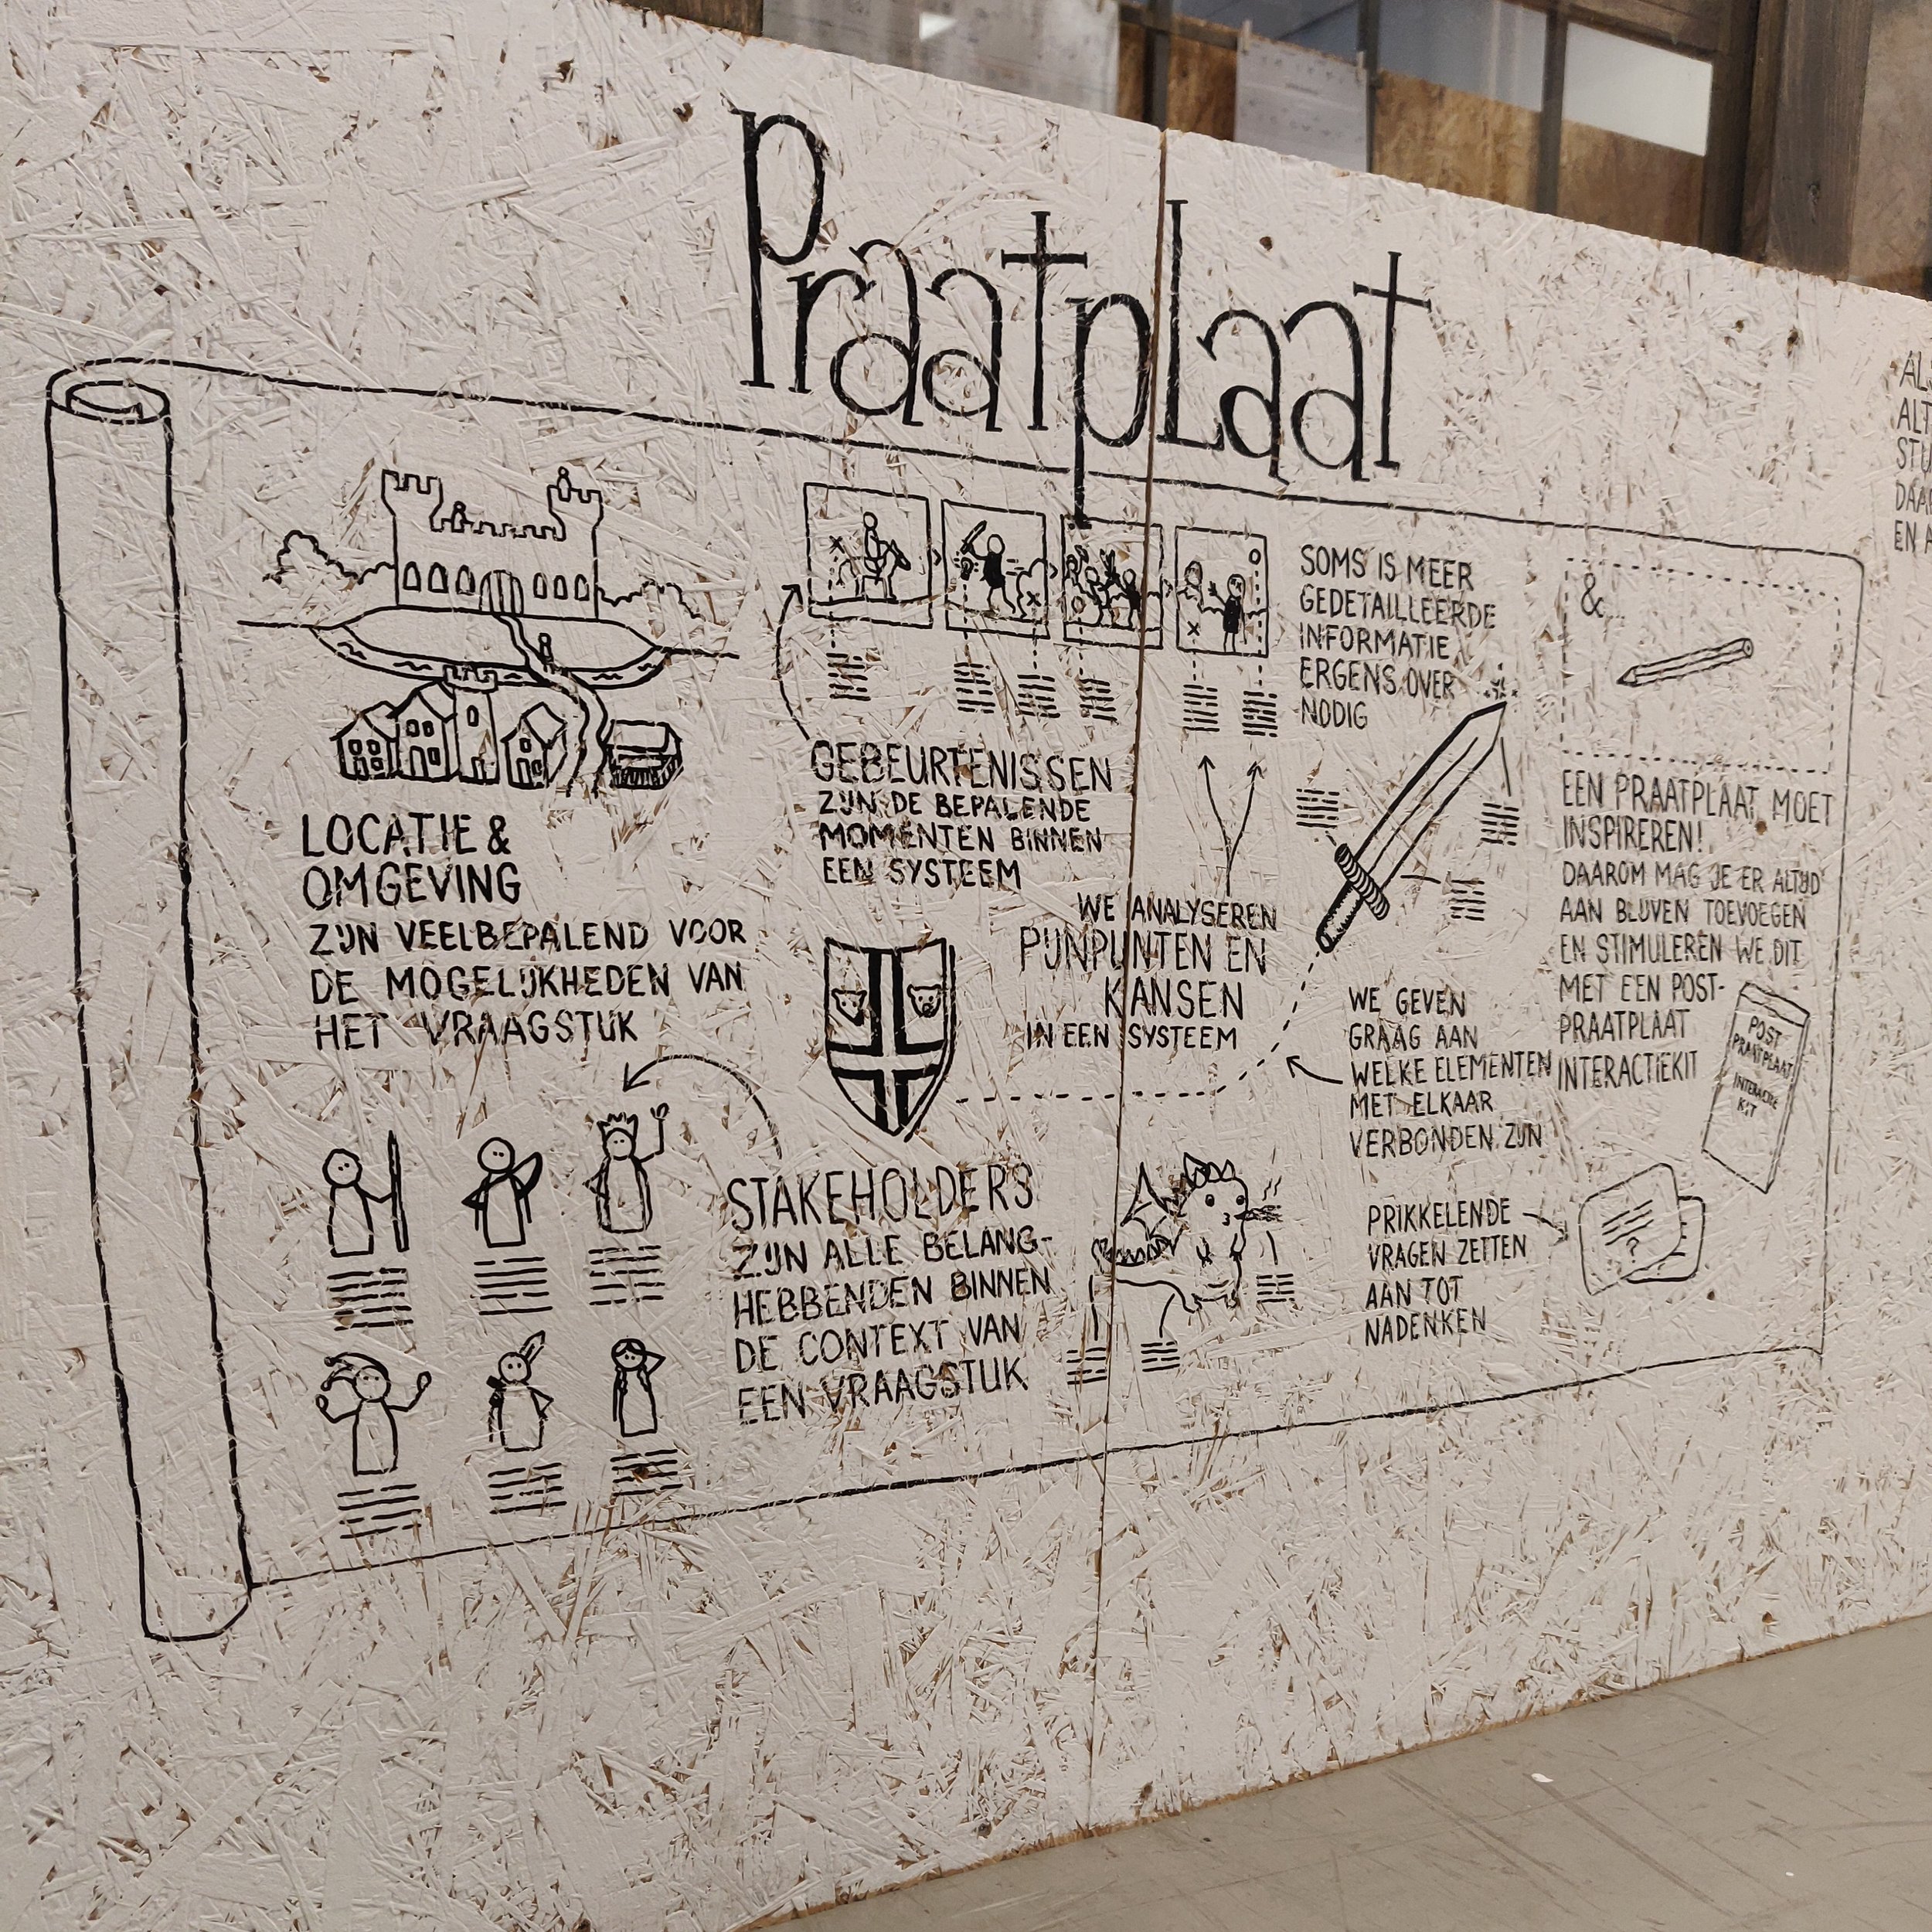 Praatplaat
LOCATIE &
OMGEVING
ZIJN VEELBEPALEND VOOR
DE MOGELIJKHEDEN VAN
HET VRAAGSTUK
GEBEURTENISSEN
ZIJN DE BEPALENDE
MOMENTEN BINNEN
EEN SYSTEEM
WE ANALYSEREN
PIJNPUNTEN EN
KANSEN
IN EEN SYSTEEM
STAKEHOLDERS
ZIJN ALLE BELANG-
HEBBENDEN BINNEN
DE CONTEXT VAN
EEN VRAAGSTUK
SOMS IS MEER
GEDETAILLEERDE
INFORMATIE
ERGENS OVER
NODIG
WE GEVEN
GRAAG AAN
WELKE ELEMENTEN
MET ELKAAR
VERBONDEN ZIJN
PRIKKELENDE
VRAGEN ZETTEN
AAN TOT
NADENKEN
?
&...
EEN PRAATPLAAT MOET
INSPIREREN!
DAAROM MAG JE ER ALTIJD
AAN BLIJVEN TOEVOEGEN
EN STIMULEREN WE DIT
MET EEN POST-
PRAATPLAAT
INTERACTIEKIT
POST
PRAATPLAAT
INTERACTIE
KIT
EN